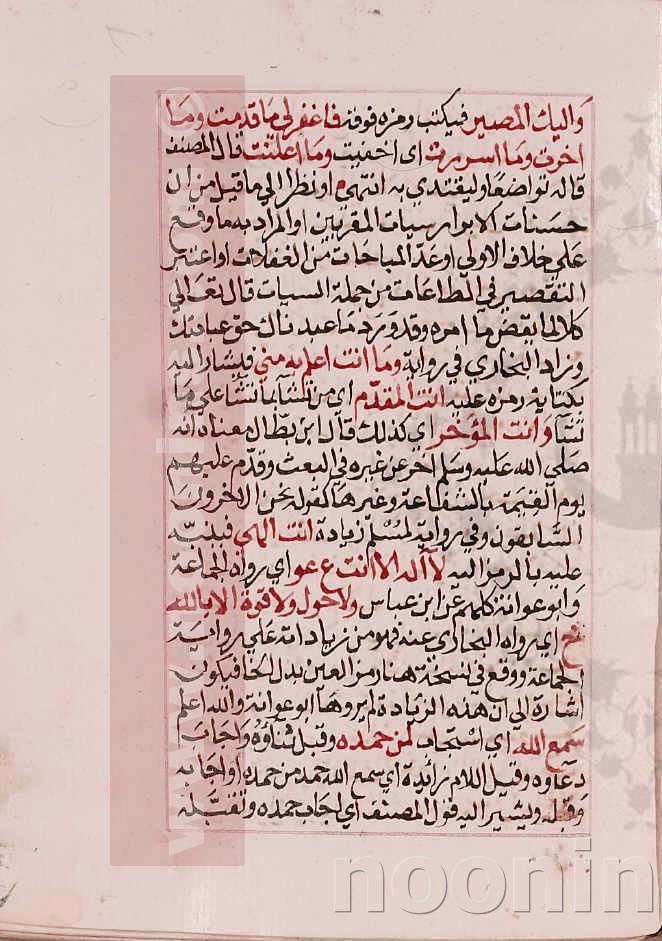 واليك المصير فيكتب رمزه فوقه فاغفر لي ما قدمت وما
اخرت وما اسررت اي اخفيت وما اعلنت قال المصنف
قاله تواضعا وليقتدي به انتهي او نظرا الي ما قيل من ان
حسنات الابرار سيات المقربين او المراد به ما وقع
علي خلاف الاولي او عد المباحات من الغفلات او اعتبر
التقصير في الطاعات من جملة السيات قال تعالي
كلا لما يقض ما امره وقد ورد ما عبدناك حق عبادتك
وزاد البخاري في رواية وما انت اعلم به مني فيشار اليه
بكتابة رمزه عليه انت المقدم اي من تشآ بما تشآ علي ما
تشآ وانت المؤخر اي كذلك قال ابن بطال معناه انه
صلي الله عليه وسلم اخر عن غيره في البعث وقدم عليهم
يوم القيمة بالشفاعة وغيرها كقوله نحن الاخرون
السابقون وفي رواية لمسلم زيادة انت الهي فينبه
عليه بالرمز اليه لآ اله الا انت ع عو اي رواه الجماعة
وابو عوانة كلهم عن ابن عباس ولا حول ولا قوة الا بالله
خ اي رواه البخاري عنه فهو من زياداته علي رواية
الجماعة ووقع في نسخة هنا رمز العين بدل الخا فيكون
اشارة الي ان هذه الزيادة لم يروها ابو عوانة والله اعلم
سمع الله اي استجاب لمن حمده وقبل ثناؤه واجاب
دعاوه وقيل اللام زائدة اي سمع الله حمد من حمده او اجابه
وقبله ويشير اليه قول المصنف اي اجاب حمده وتقبله
noonin